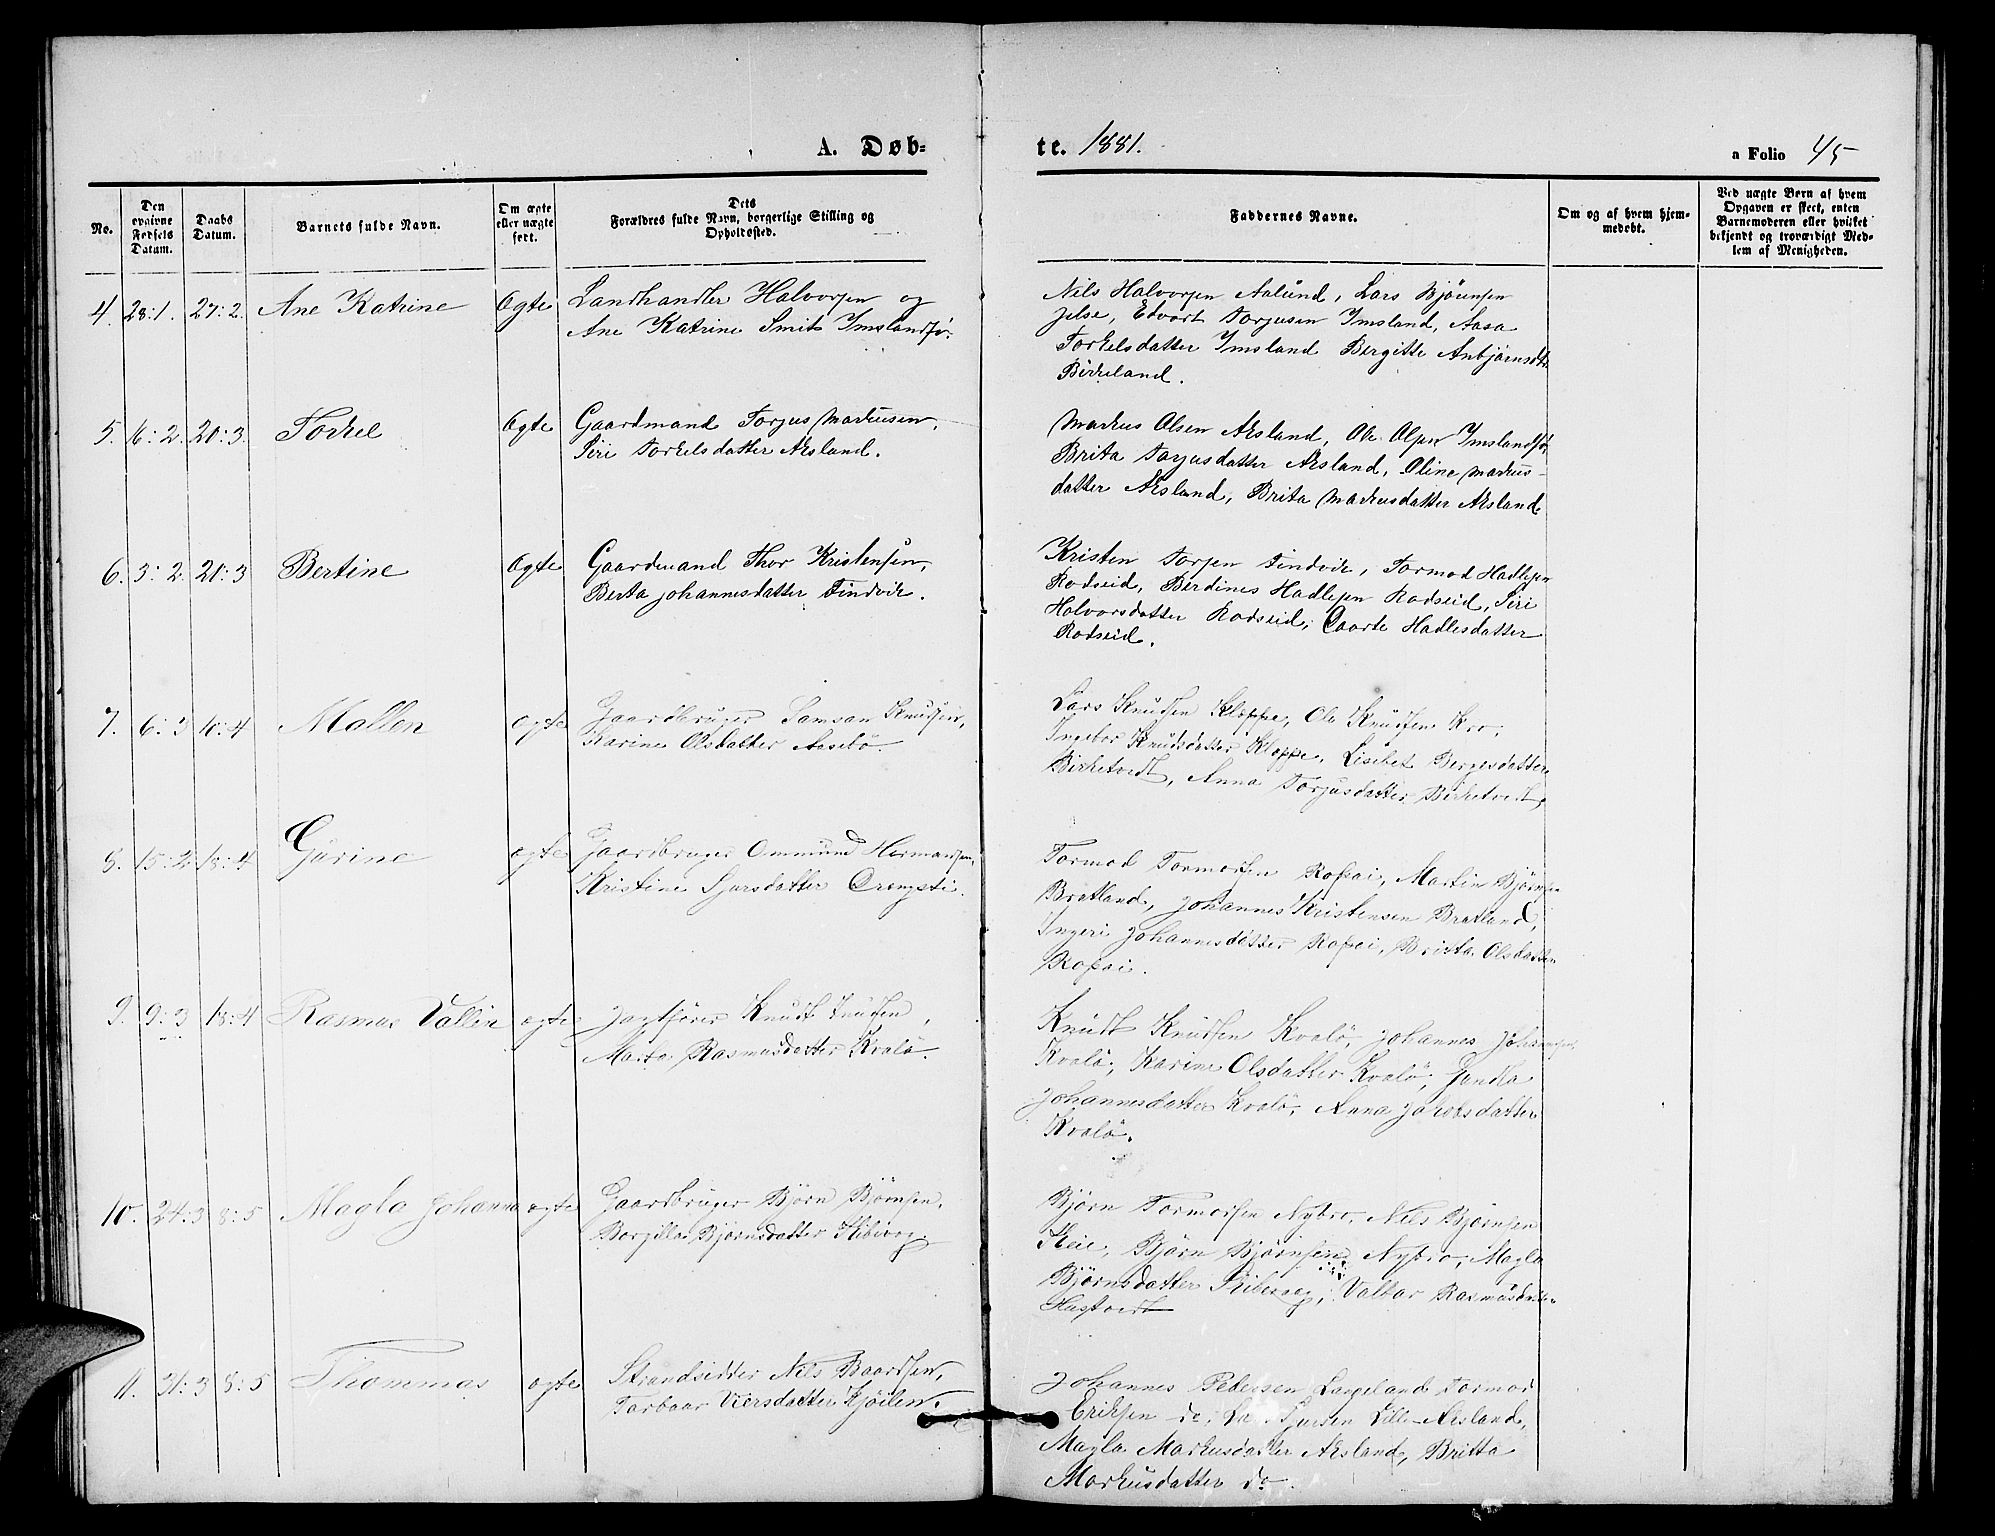 A. Døb-
te. 1881.
a Folio 45
No.
Den opgivne Fødsels Datum.
Daabs Datum.
Barnets fulde Navn.
Om ægte eller uægte født.
Dets Forældres fulde Navn, borgerlige Stilling og Opholdssted.
Faddernes Navne.
Om og af hvem hjem-
medøbt.
Ved uægte Børn af hvem
Opgaven er skeet, enten
Barnemoderen eller hvilket
bekjendt og troværdigt Med-
lem af Menigheden.
4. 28:1. 27:2. Ane Katrine Ogte Landhandler Halvorsen og
Ane Katrine Smits Imslandsjø.
Nils Halvorsen Aalund, Lars Bjørnsen
Jelse, Edvart Torjusen Imsland, Aasa
Torkelsdatter Imsland Bergitte Anbjørnsdtr
Birkeland.
5. 16:2. 20:3. Torkel Ogte Gaardmand Torjus Markusen,
Siri Torkelsdatter Aksland.
Markus Olsen Aksland, Ole Olsen Imslandsjø,
Brita Torjusdatter Aksland, Oline Markus-
datter Aksland, Brita Markusdatter Aksland
6. 3:2. 20:3 Bertine Ogte Gaardmand Thor Kristensen,
Berta Johannesdatter Tindvik.
Kristen Torsen Tindvik, Tormod Hadlesen
Rodseid, Berdines Hadlesen Rodseid, Siri
Halvorsdatter Rodseid, Caarte Hadlesdatter
Rodseid.
7. 6:3 10:4 Mallen ogte Gaardbruger Samson Knudsen,
Karine Olsdatter Aasebö.
Lars Knudsen Kloppe, Ole Knudsen Kro,
Ingebor Knudsdatter Kloppe, Lisebet Bergesdatter
Birketvedt, Anna Torjusdatter Birketvedt,
8. 15:2 18:4 Gurine ogte Gaardbruger Ommund Hermansen,
Kristine Sjursdatter Drengsti.
Tormod Tormodsen Ropai, Martin Bjørnsen
Bratland, Johannes Kristensen Bratland,
Ingeri Johannesdatter Ropai, Brita Olsdatter
Ropai.
9. 9:3 18:4 Rasmus Vallin ogte Jagtfører Knudt Knudsen,
Marta Rasmusdatter Kvalö.
Knudt Knudsen Kvalö, Johannes Johannsen
Kvalö, Karine Olsdatter Kvalö, Jandla
Johannesdatter Kvalö, Anna Jakobsdatter
Kvalö.
10. 24:3 8:5 Magla Johanna ogte Gaardbruger Bjørn Bjørnsen,
Borgilla Bjørnsdatter Skibevog.
Bjørn Tormodsen Nybro, Nils Bjørnsen
Skeie, Bjørn Bjørnsen Nybro, Magla
Bjørnsdatter Skibevog, Valbor Rasmusdatter
Hustvedt
11. 31:3 8:5 Thommas ogte Strandsidder Nils Baardsen,
Torbaar Viersdatter Kjøilen.
Johannes Pedersen Langeland Tormod
Eriksen do, La Sjursen Lille-Aksland,
Magla Markusdatter Aksland, Britta
Markusdatter do.